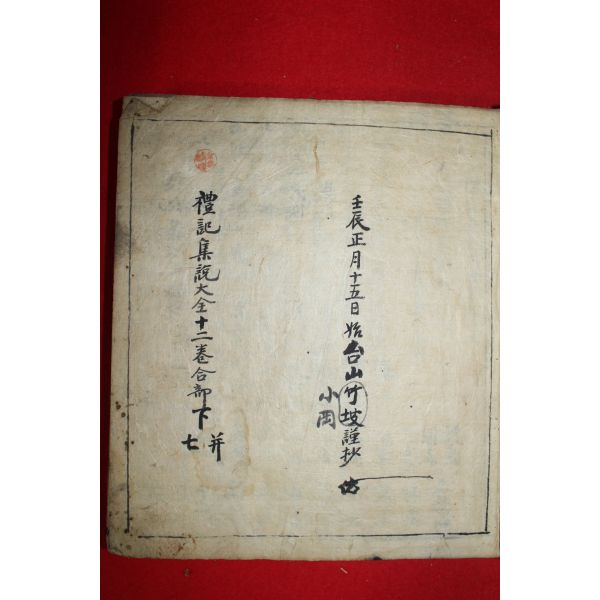 壬辰正月十五日始台山竹坡謹抄
小岡
禮記集說大全十二卷合部下
七
幷